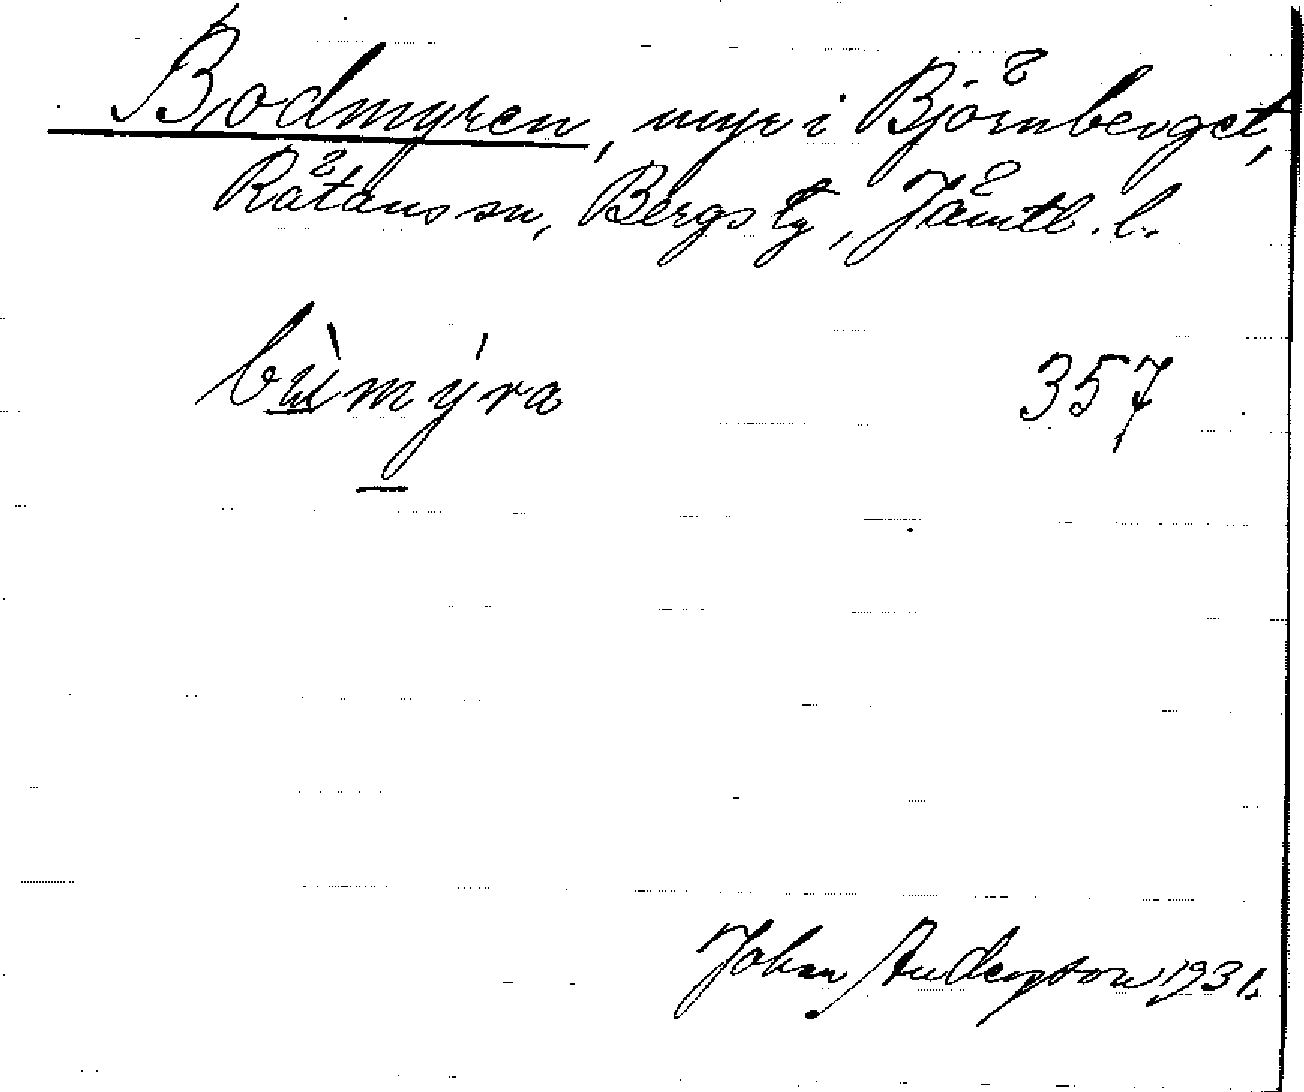 Bodmyren, myr i Björnberget,
Rätans sn, Bergs tg, Jämtl. l.
bùmýra 357
Johan Andersson 1931.